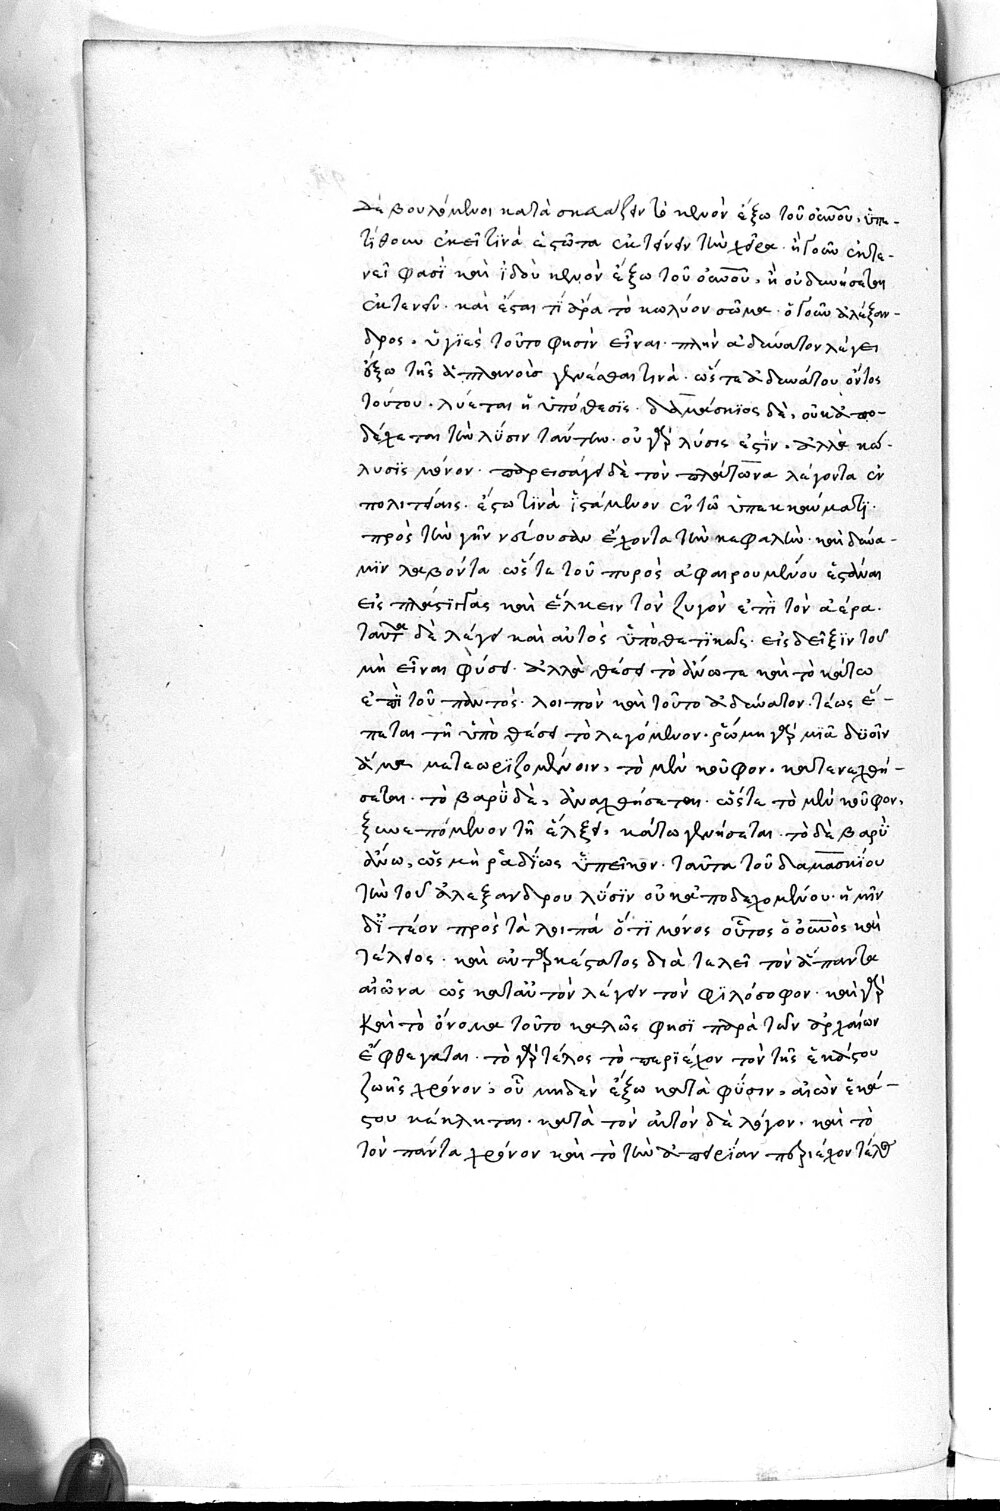 δὲ βουλόμενοι κατασκευάζειν τὸ κενὸν ἔξω τοῦ οὐνοῦ, ὑπο-
τίθενται ἐκεῖ τινὰ ἑστῶτα ἐκτείνειν τὴν χεῖρα · ἢ γοῦν ἐκτε-
νεῖ φασὶ καὶ ἰδοὺ κενὸν ἔξω τοῦ οὐνοῦ, ἢ οὐ δυνήσεται
ἐκτενεῖν · καὶ ἔσται τὶ ἄρα τὸ κωλύον σῶμα · ὁ γοῦν ἀλέξαν-
δρος · ὑγιὲς τοῦτο φησὶν εἶναι · πλὴν ἀδύνατον λέγει
ἔξω τῆς ἀπλανοῦς γενέσθαι τινά · ὥστε ἀδυνάτου ὄντος
τούτου · λύεται ἡ ὑπόθεσις · δαμάσκιος δὲ, οὐκ ἀπο-
δέχεται τὴν λύσιν ταύτην · οὐ γὰρ λύσις ἐστὶν · ἀλλὰ κώ-
λυσις μόνον · παρεισάγει δὲ τὸν πλάτωνα λέγοντα ἐν
πολιτείαις · ἔστω τινὰ ἱστάμενον ἐν τῷ ὑπεκκαύματι ·
πρὸς τὴν γῆν νεύουσαν ἔχοντα τὴν κεφαλὴν · καὶ δύνα-
μιν λαβόντα ὥστε τοῦ πυρὸς ἀφαιρουμένου ἑστάναι
εἰς πλάστιγγας καὶ ἕλκειν τὸν ζυγὸν ἐπὶ τὸν ἀέρα ·
ταῦτα δὲ λέγει καὶ αὐτὸς ὑποθετικῶς · εἰς δεῖξιν τοῦ
μὴ εἶναι φύσει · ἀλλὰ θέσει τὸ ἄνω τε καὶ τὸ κάτω
ἐπὶ τοῦ παντός · λοιπὸν καὶ τοῦτο ἀδύνατον · τέως ἕ-
πεται τῇ ὑποθέσει τὸ λεγόμενον · ῥώμη γὰρ μιᾶ δυοῖν
ἅμα μετεωριζομένοιν, τὸ μὲν κοῦφον · κατενεχθή-
σεται · τὸ βαρὺ δὲ, ἀνενεχθήσεται · ὥστε τὸ μὲν κοῦφον,
ξυνεπόμενον τῇ ἕλξει, κάτω γενήσεται · τὸ δὲ βαρὺ
ἄνω, ὡς μὴ ῥαδίως ὑπεῖκον · ταῦτα τοῦ δαμασκίου
τὴν τοῦ ἀλεξάνδρου λύσιν οὐκ ἀποδεχομένου · ἡμῖν
διϊτέον πρὸς τὰ λοιπὰ ὅτι μόνος οὗτος ὁ οὐνὸς καὶ
τέλειος · καὶ αὐταρκέστατος διατελεῖ τὸν ἅπαντα
αἰῶνα ὡς κατ' αὐτὸν λέγειν τὸν φιλόσοφον · καὶ γὰρ
καὶ τὸ ὄνομα τοῦτο καλῶς φησὶ παρὰ τῶν ἀρχαίων
ἔφθεγκται · τὸ γὰρ τέλος τὸ περιέχον τὸν τῆς ἑκάστου
ζωῆς χρόνον, οὗ μηδὲν ἔξω κατὰ φύσιν, αἰὼν ἑκά-
στου κέκληται · κατὰ τὸν αὐτὸν δὲ λόγον · καὶ τὸ
τὸν πάντα χρόνον καὶ τὸ τὴν ἀπειρίαν περιέχον τέλος